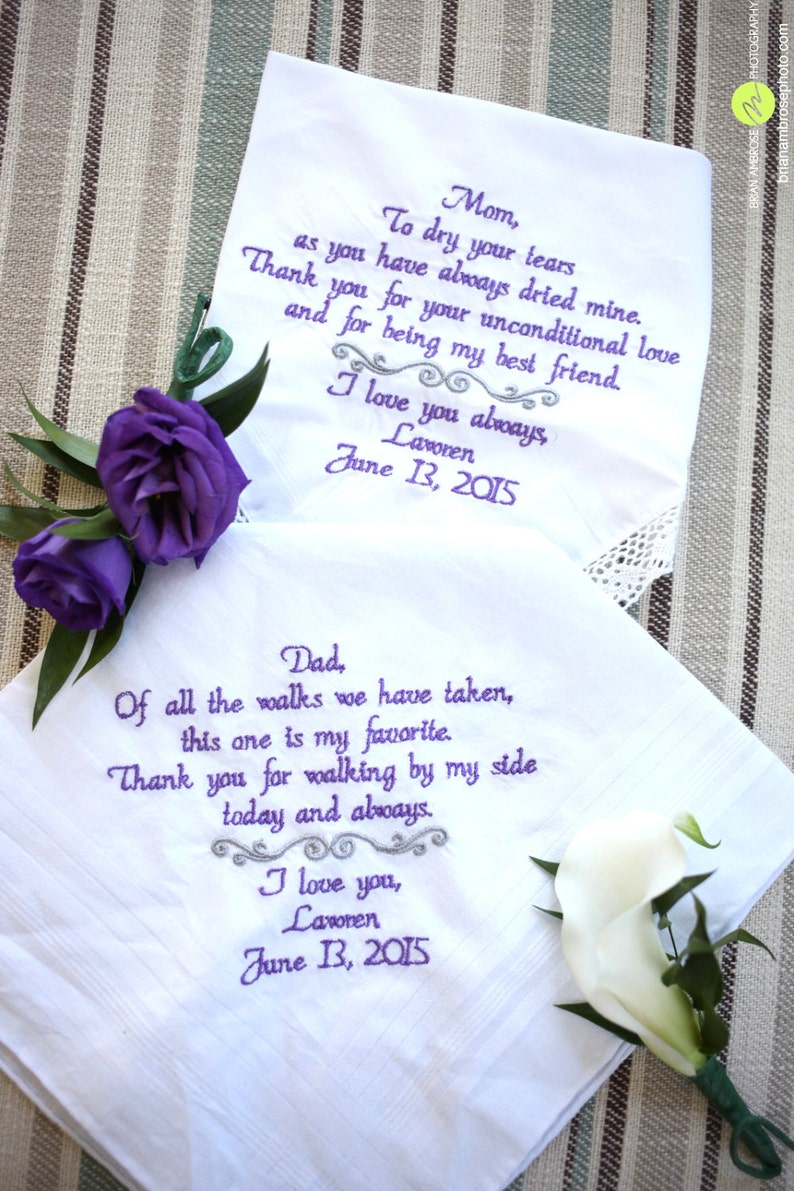 BRIAN AMBROSE PHOTOGRAPHY
brianambrosephoto.com
Mom,
To dry your tears
as you have always dried mine.
Thank you for your unconditional love
and for being my best friend.
I love you always,
Lauren
June 13, 2015
Dad,
Of all the walks we have taken,
this one is my favorite.
Thank you for walking by my side
today and always.
I love you,
Lauren
June 13, 2015